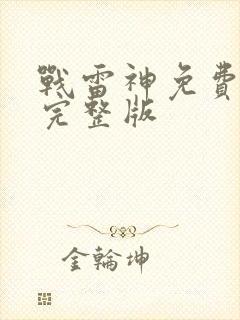 戰雷神免費
完整版
金輪坤